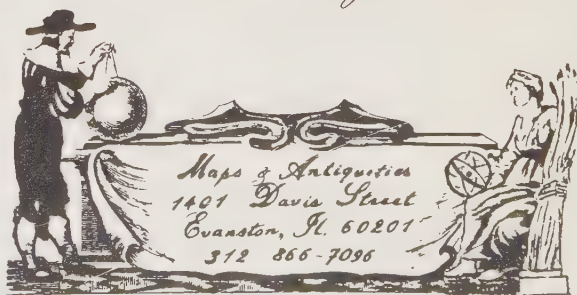 Maps & Antiquities
1401 Davis Street
Evanston, Il. 60201
312 866-7096